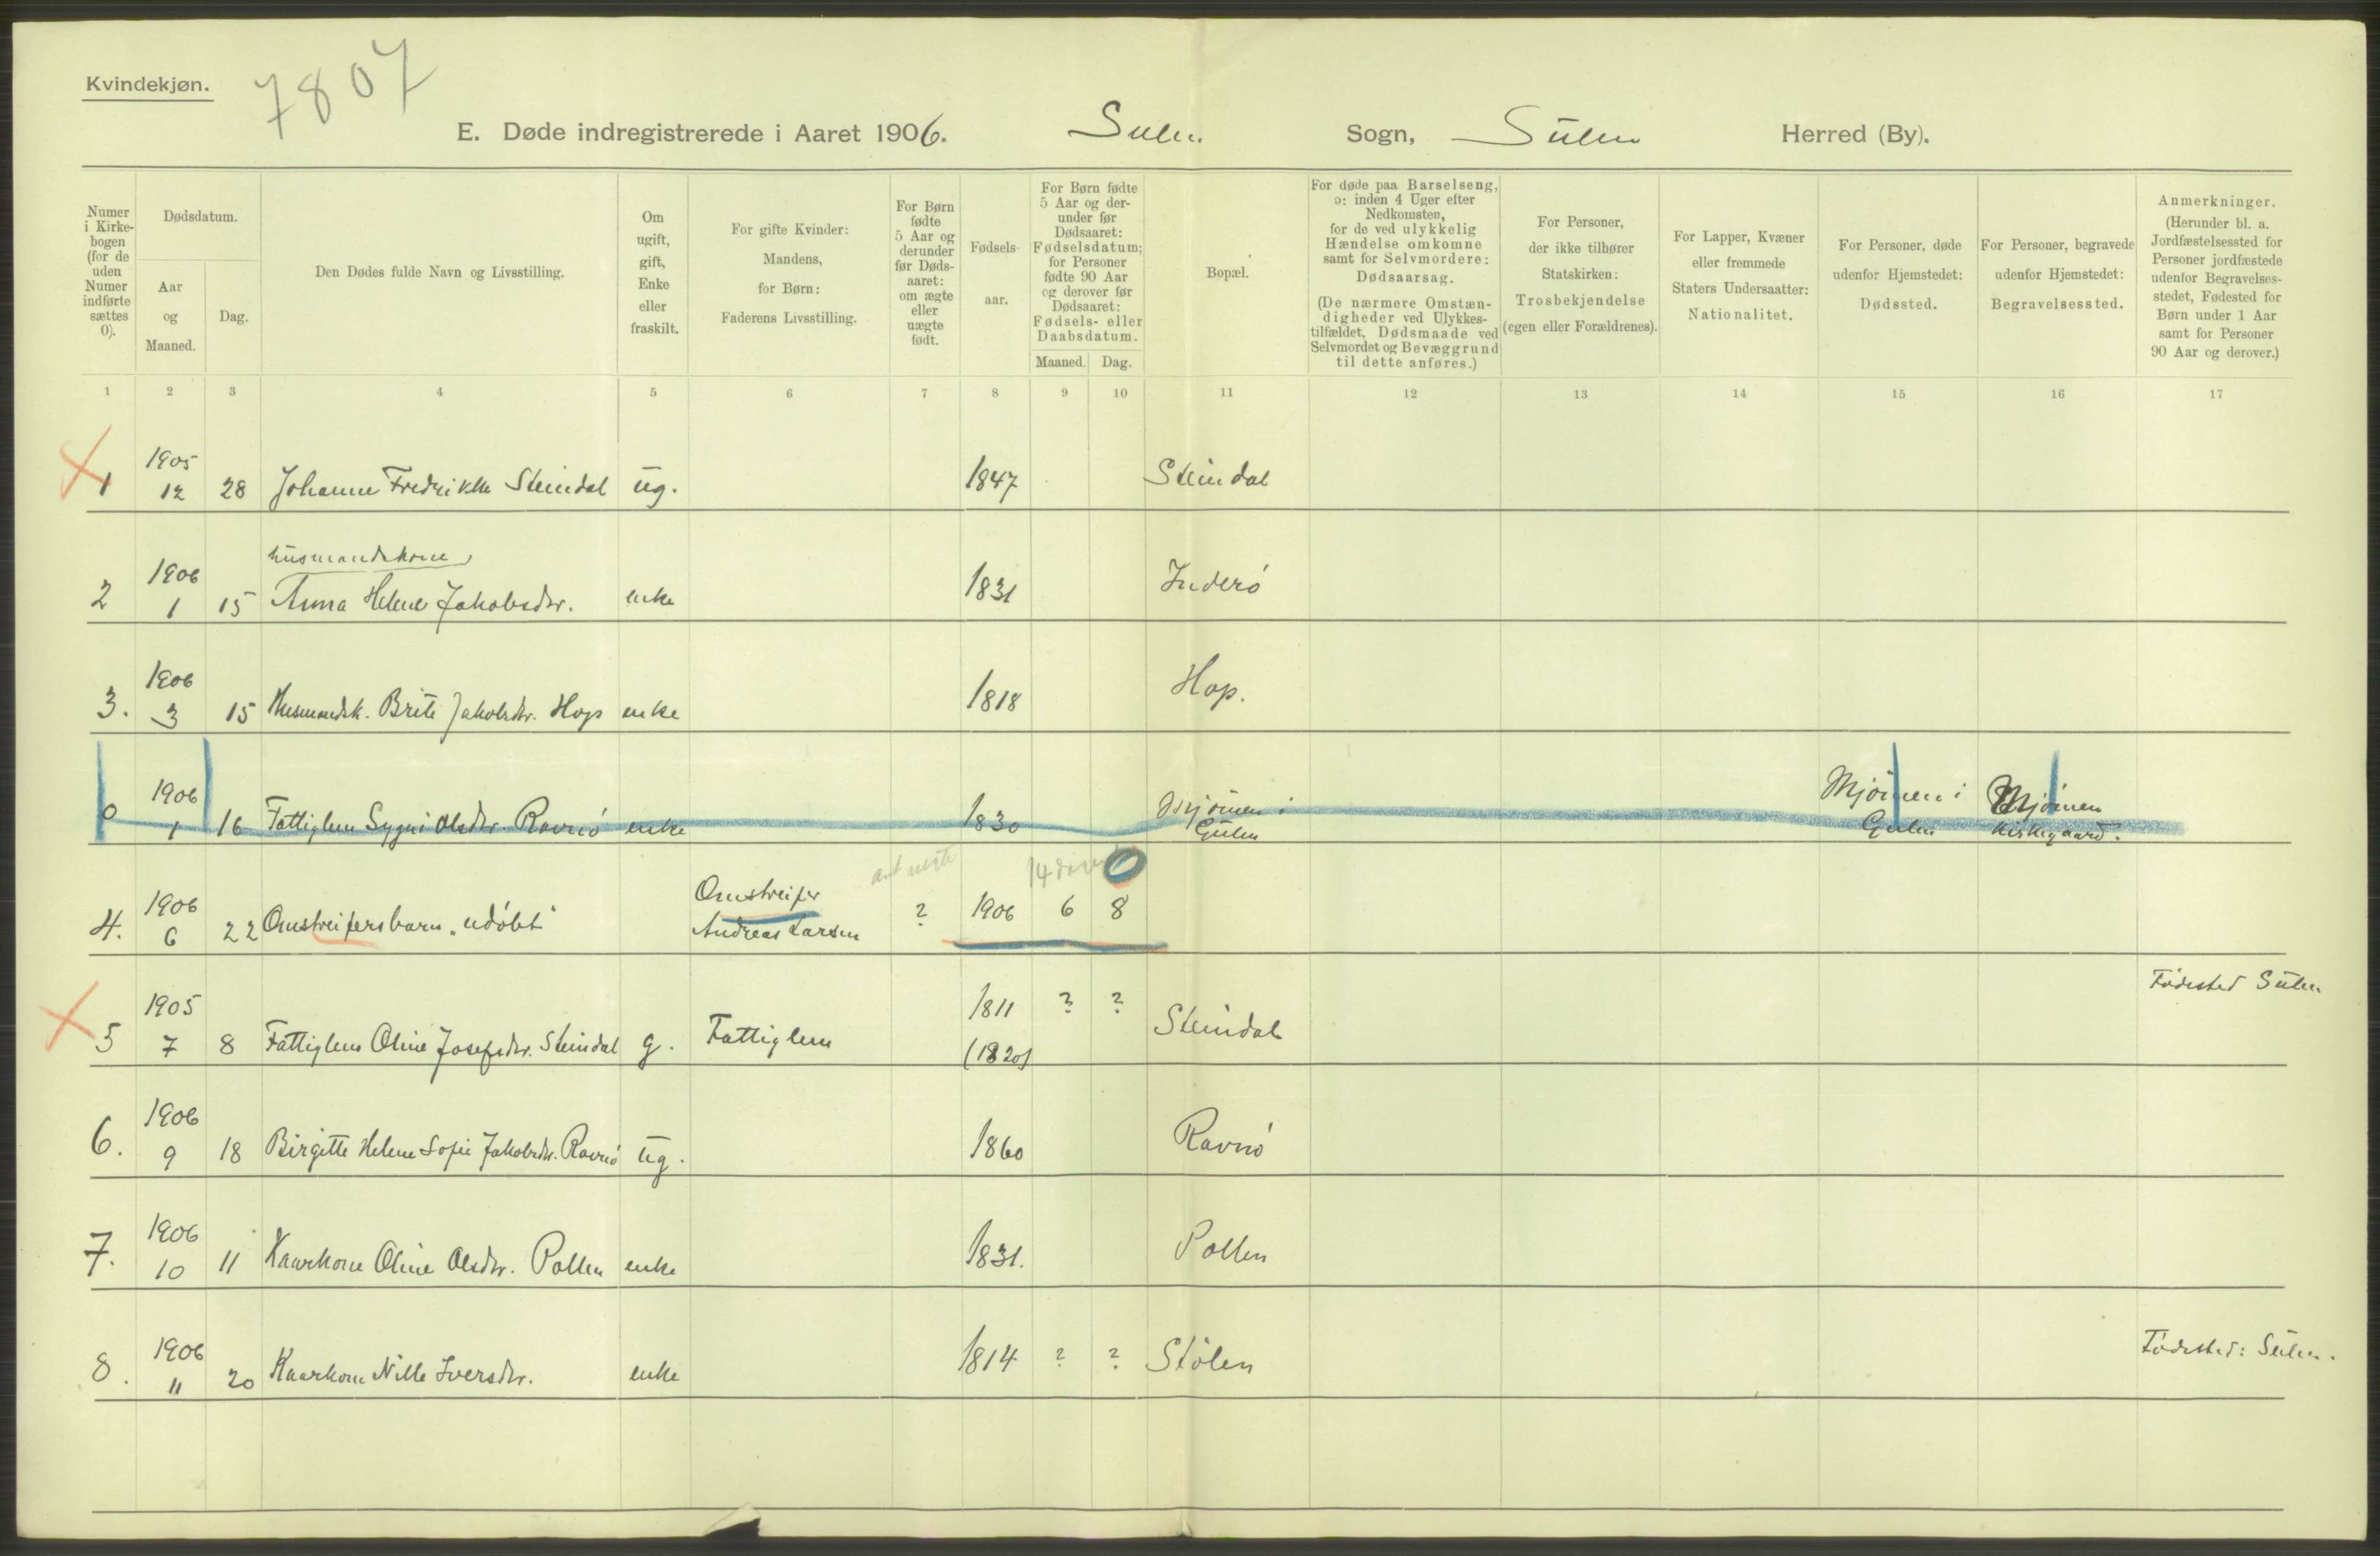 Kvindekjøn.
7807
E. Døde indregistrerede i Aaret 1906. Sulen Sogn, Sulen Herred (By).
Numer i Kirke-bogen (for de uden Numer indførte sættes 0).
Dødsdatum.
Aar og Maaned.
Dag.
Den Dødes fulde Navn og Livsstilling.
Om ugift, gift, Enke eller fraskilt.
For gifte Kvinder: Mandens, for Børn: Faderens Livsstilling.
For Børn fødte 5 Aar og derunder før Døds-aaret: om ægte eller uægte født.
Fødsels-aar.
For Børn fødte 5 Aar og der-under før Dødsaaret: Fødselsdatum; for Personer fødte 90 Aar og derover før Dødsaaret: Fødsels- eller Daabsdatum.
Maaned. Dag.
Bopæl.
For døde paa Barselseng, ɔ: inden 4 Uger efter Nedkomsten, for de ved ulykkelig Hændelse omkomne samt for Selvmordere: Dødsaarsag.
(De nærmere Omstæn-digheder ved Ulykkes-tilfældet, Dødsmaade ved Selvmordet og Bevæggrund til dette anføres.)
For Personer, der ikke tilhører Statskirken: Trosbekjendelse (egen eller Forældrenes).
For Lapper, Kvæner eller fremmede Staters Undersaatter: Nationalitet.
For Personer, døde udenfor Hjemstedet: Dødssted.
For Personer, begravede udenfor Hjemstedet: Begravelsessted.
Anmerkninger. (Herunder bl. a. Jordfæstelsessted for Personer jordfæstede udenfor Begravelses-stedet, Fødested for Børn under 1 Aar samt for Personer 90 Aar og derover.)
1 2 3 4 5 6 7 8 9 10 11 12 13 14 15 16 17
1 1905 12 28 Johanne Fredrikke Steindal ug. 1847 Steindal
husmandskone
2 1906 1 15 Anna Helene Jakobsdtr. enke 1831 Inderö
3. 1906 3 15 Husmandsk. Brite Jakobsdtr. Hop enke 1818 Hop.
0 1906 1 16 Fattiglem Sygni Olsdtr. Ravnö enke 1830 Mjömen i Gulen Mjömen i Gulen Mjömen kirkegaard.
14 dage
4. 1906 6 22 Omstreifersbarn "udöbt" Omstreifer Andreas Larsen ? 1906 6 8
5 1905 7 8 Fattiglem Oline Josefsdtr. Steindal g. Fattiglem 1811 (1820) ? ? Steindal Födested Sulen
6. 1906 9 18 Birgitte Helene Sofie Jakobsdtr. Ravnö ug. 1860 Ravnö
7. 1906 10 11 Kaarkone Oline Olsdtr. Pollen enke 1831. Pollen
8. 1906 11 20 Kaarkone Nille Iversdtr. enke 1814 ? ? Stölen Födested: Sulen.